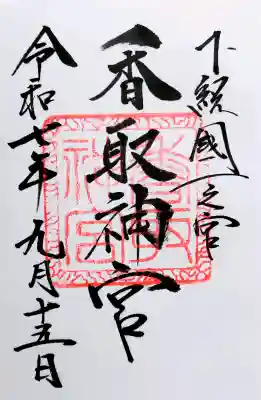 下総國一之宮
香取神宮
令和七年九月十五日